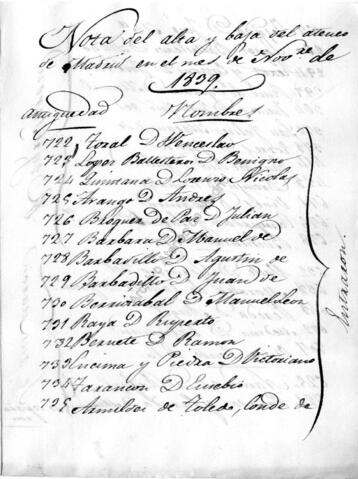 Nota del alta y baja del ateneo
de Madrid en el mes de Novre. de
1839.
Antiguedad Nombres
722 Toral D Wenceslao
723 Lopez Ballesteros D Benigno
724 Quintana D Lorenzo Nicolas
725 Arango D Andres
726 Broguer de Paz D Julian
727 Barbara D Manuel de
728 Barbadillo D Agustin de
729 Barbadillo D Juan de
730 Berrizabal D Manuel Leon
731 Raya D Ruperto
732 Bernete D Ramon
733 Encima y Piedra D Victoriano
734 Tarancon D Eusebio
735 de Toledo, Conde de
Entraron.